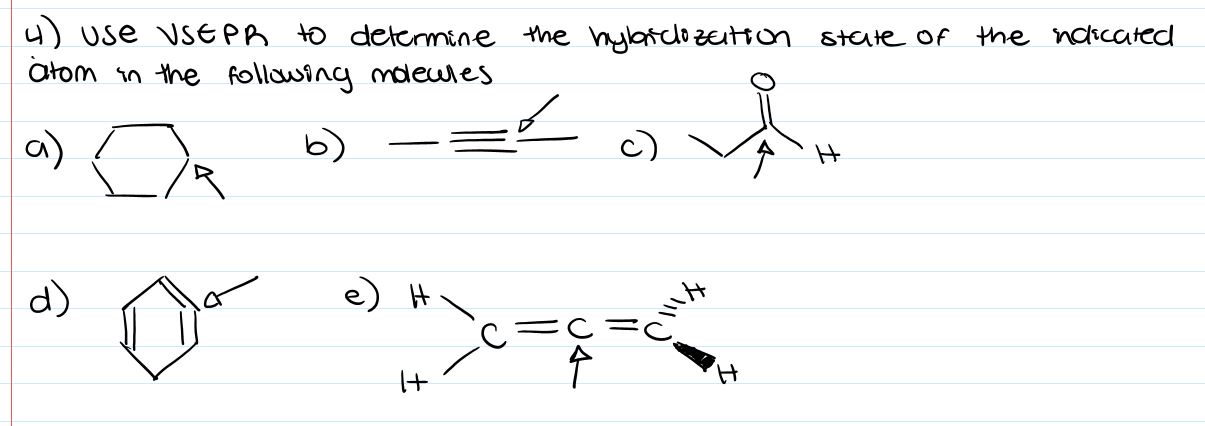 4) Use VSEPR to determine the hybridization state of the indicated
atom in the following molecules
a) b) c) O H
d) e) H H
C = C = C
H H